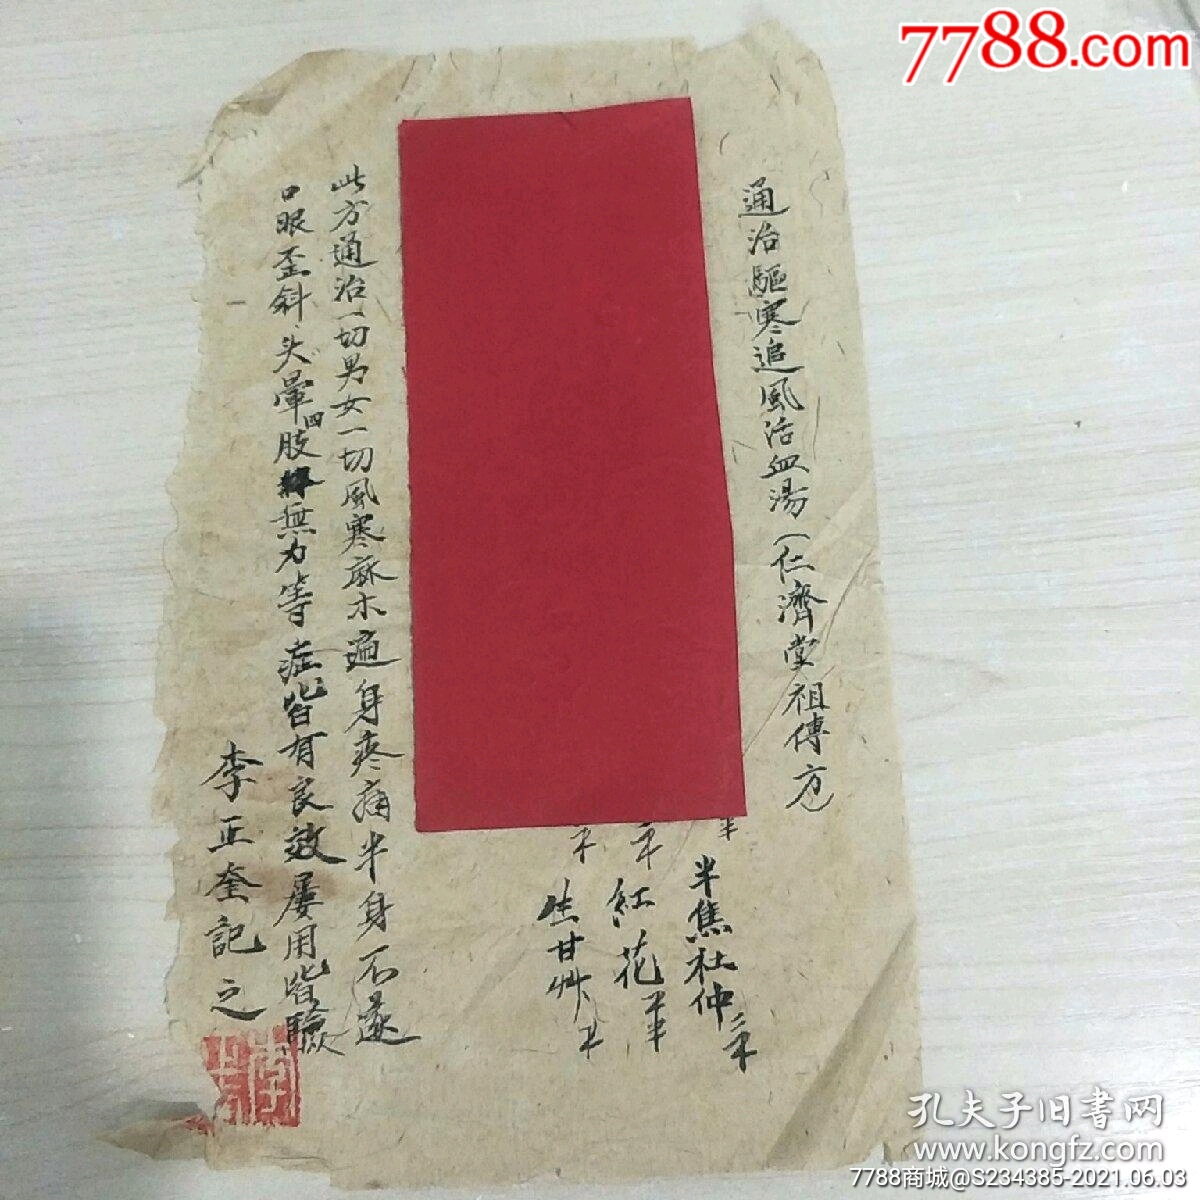 7788.com
通治驅寒追風活血湯(仁濟堂祖傳方)
半焦杜仲
紅花
生甘艸
此方通治一切男女一切風寒麻木遍身疼痛半身不遂
口眼歪斜、头暈四肢無力等症皆有良效屢用皆驗
李正奎記之
孔夫子旧书网
www.kongfz.com
7788商城@S234385-2021.06.03